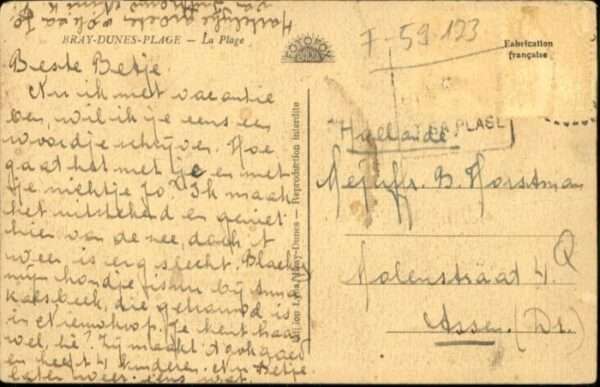 Hartelijke groeten ook aan Jo
BRAY-DUNES-PLAGE — La Plage
F-59.123
Fabrication
française
Beste Betje.
Nu ik met vacantie
ben, wil ik je eens een
woordje schrijven. Hoe
gaat het met je en met
je nichtje Jo? Ik maak
het uitstekend en geniet
hier van de zee, doch 't
weer is erg slecht. Blacky
mijn hondje is nu bij Anna
die getrouwd is
in Je kent haar
wel, hè? Zij maakt 't ook goed
en heeft 4 kinderen. Nu Betje
later weer eens wat.
Bray-Dunes — Reproduction interdite
PLAGE
Hollande
Mejuffr. B. Horstman
Molenstraat 4.
Assen. (Dr.)